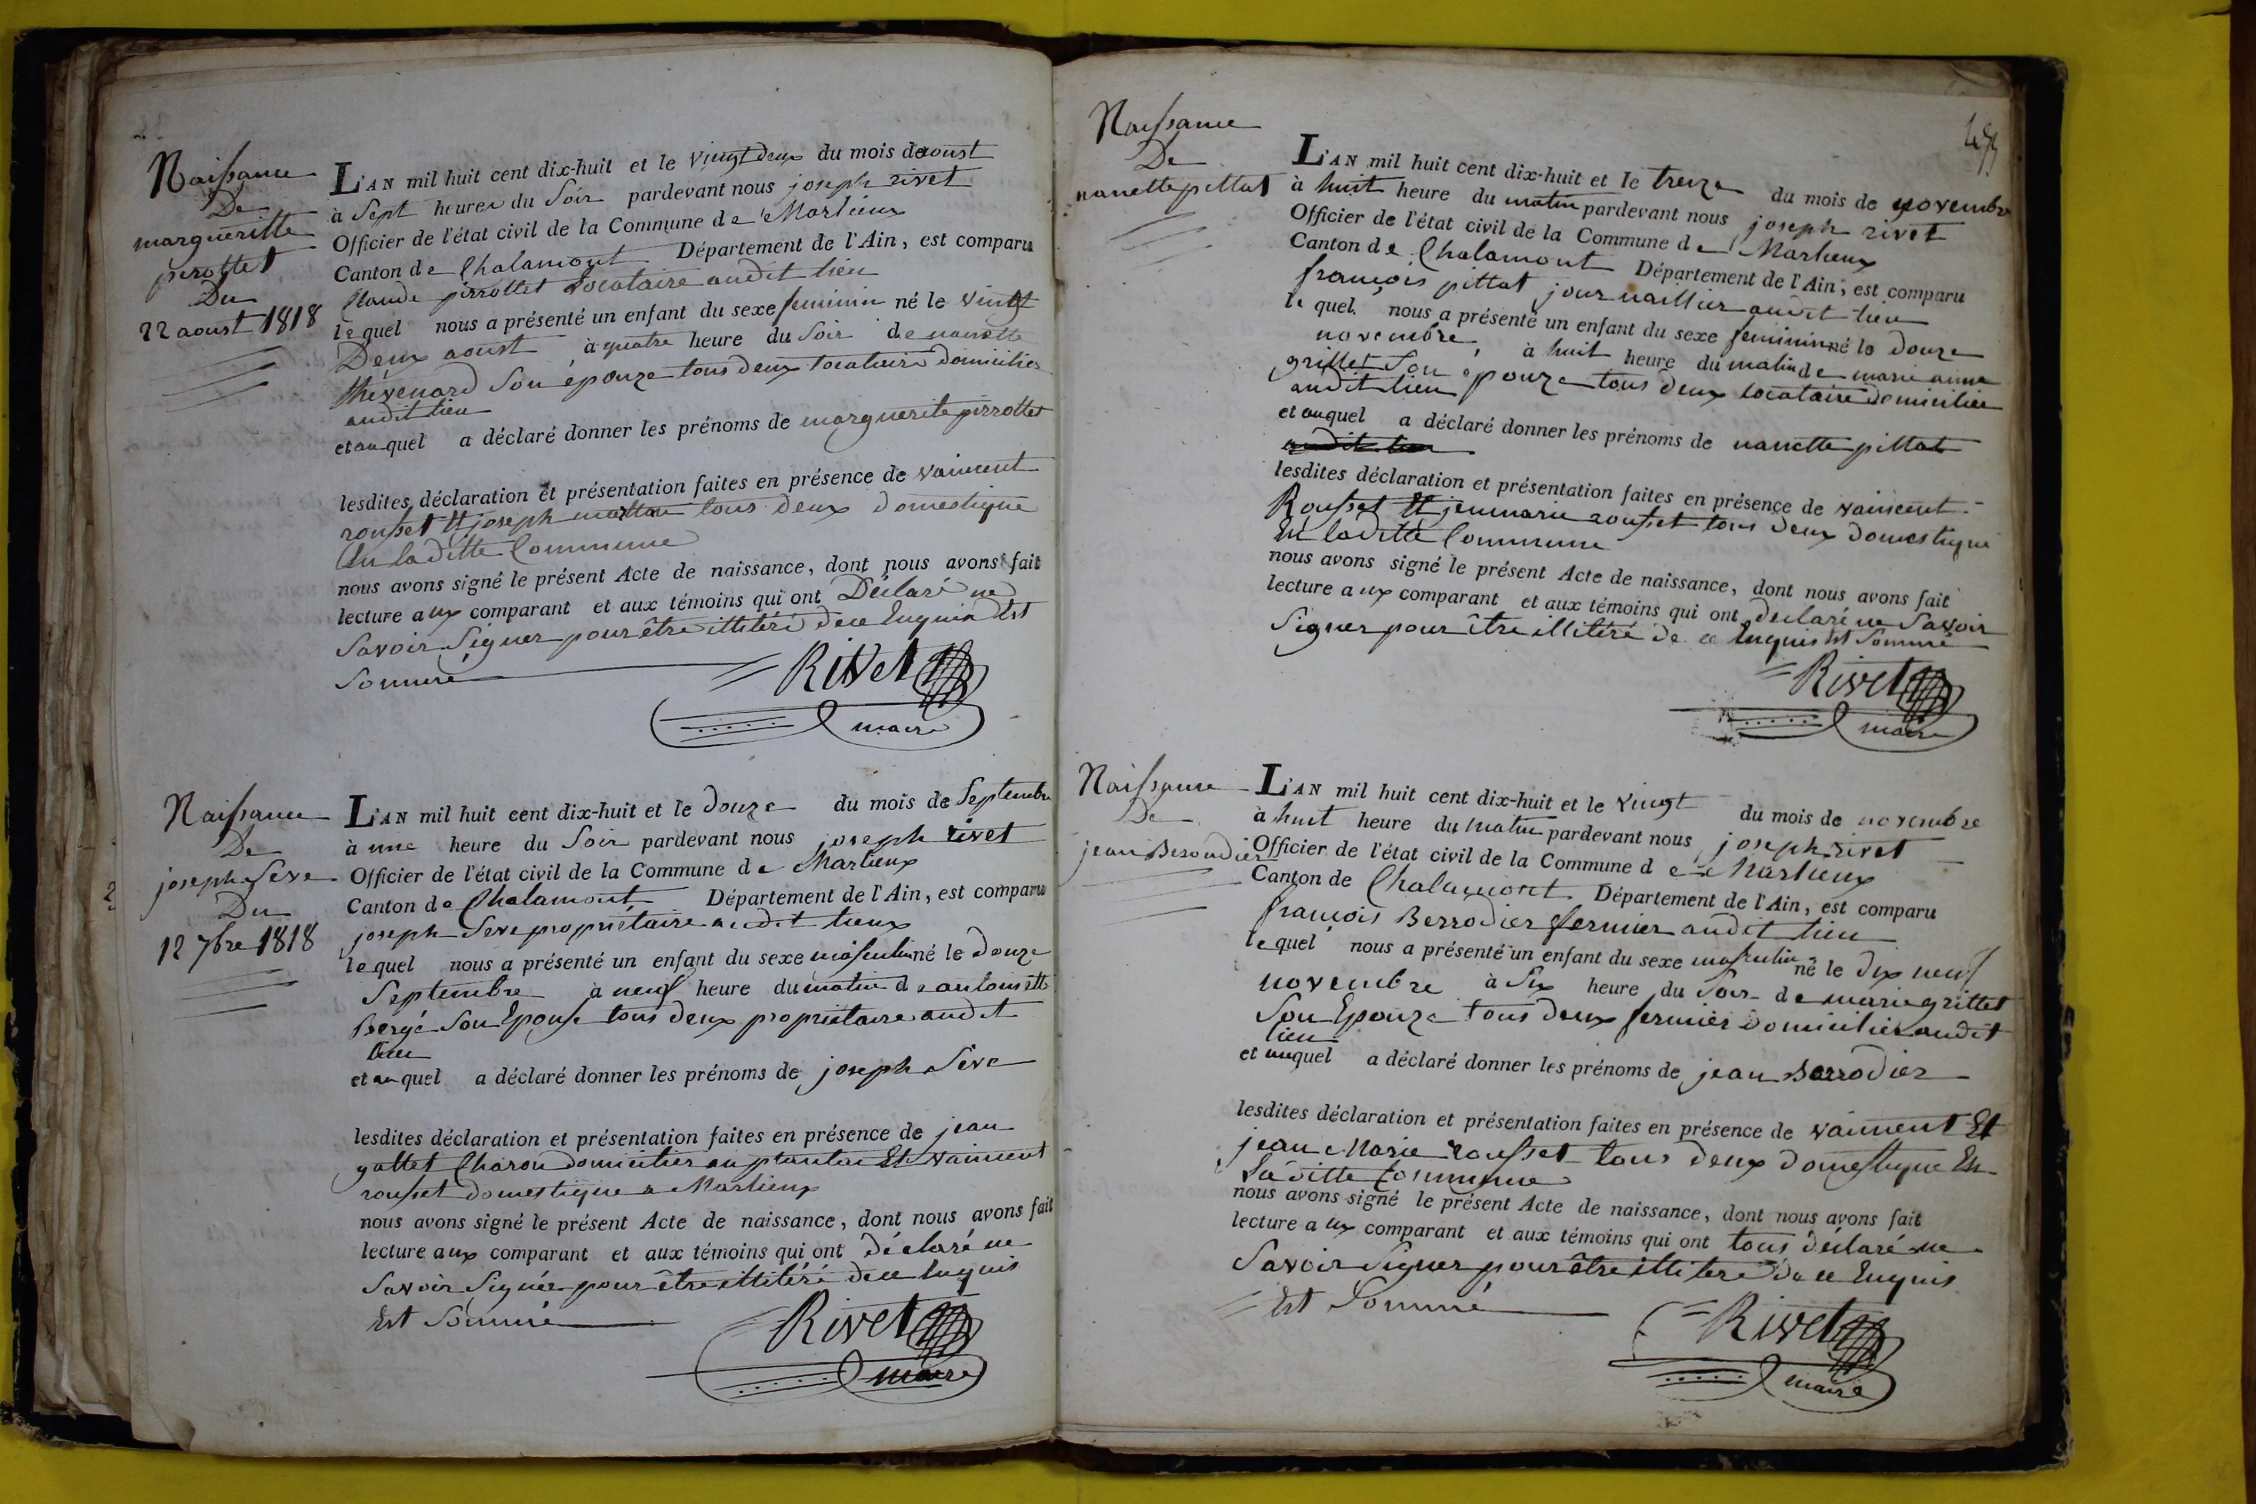 Naissance
De
margueritte
pirottet
Du
22 aoust 1818
L'AN mil huit cent dix-huit et le vingt deux du mois de aoust
à Sept heures du Soir pardevant nous joseph rivet
Officier de l'état civil de la Commune de Marlieux
Canton de Chalamont Département de l'Ain, est comparu
Claude pirrottet Locataire audit lieu
lequel nous a présenté un enfant du sexe feminin né le vingt
Deux aoust à quatre heure du Soir de nanette
thévenard Son épouze tous deux locataire domicilies
audit lieu
et auquel a déclaré donner les prénoms de marguerite pirrottet
lesdites déclaration et présentation faites en présence de vaincent
rousset Et joseph tous deux domestique
En la ditte Commune
nous avons signé le présent Acte de naissance, dont nous avons fait
lecture aux comparant et aux témoins qui ont Déclaré ne
Savoir Signer pour être illitéré de ce Enquis Est
Sommé
Rivet
maire
Naissance
De
joseph Seve
Du
12 7bre 1818
L'AN mil huit cent dix-huit et le douze du mois de Septembre
à une heure du Soir pardevant nous joseph rivet
Officier de l'état civil de la Commune de Marlieux
Canton de Chalamont Département de l'Ain, est comparu
joseph Seve propriétaire audit lieux
lequel nous a présenté un enfant du sexe masculin né le douze
Septembre à neuf heure du matin de antoinette
Bergé Son Epouse tous deux propriétaire audit
lieu
et auquel a déclaré donner les prénoms de joseph Sève
lesdites déclaration et présentation faites en présence de jean
gattet Charon domicilier au plantai Et vaincent
rousset domestique a Marlieux
nous avons signé le présent Acte de naissance, dont nous avons fait
lecture aux comparant et aux témoins qui ont déclaré ne
Savoir Signée pour être illitéré de ce Enquis
Est Sommé
Rivet
maire
Naissance
De
nanette pittat
L'AN mil huit cent dix-huit et le treize du mois de novembre
à huit heure du matin pardevant nous joseph rivet
Officier de l'état civil de la Commune de Marlieux
Canton de Chalamont Département de l'Ain, est comparu
françois pittat journaillier audit lieu
lequel nous a présenté un enfant du sexe feminin né le douze
novembre, à huit heure du matin de marie anne
grillet Son epouze tous deux locataire domicilier
audit lieu
et auquel a déclaré donner les prénoms de nanette pittat
audit lieu
lesdites déclaration et présentation faites en présence de vaincent
Rousset Et jenmarie rousset tous deux domestique
En laditte Commune
nous avons signé le présent Acte de naissance, dont nous avons fait
lecture aux comparant et aux témoins qui ont déclaré ne Savoir
Signer pour être illitéré de ce Enquis Est Sommé
Rivet
maire
Naissance
De
jean Berondier
L'AN mil huit cent dix-huit et le vingt du mois de novembre
à huit heure du matin pardevant nous joseph rivet
Officier de l'état civil de la Commune de Marlieux
Canton de Chalamont Département de l'Ain, est comparu
françois Berrodier fermier audit lieu
lequel nous a présenté un enfant du sexe masculin né le dix neuf
novembre à Six heure du Soir de marie grillet
Son Epouze tous deux fermier domicilier audit
lieu
et auquel a déclaré donner les prénoms de jean Berrodier
lesdites déclaration et présentation faites en présence de vaincent Et
jean Marie rousset tous deux domestique En
la ditte Commune
nous avons signé le présent Acte de naissance, dont nous avons fait
lecture aux comparant et aux témoins qui ont tous déclaré ne
Savoir Signer pour être illiteré de ce Enquis
Est Sommé
Rivet
maire